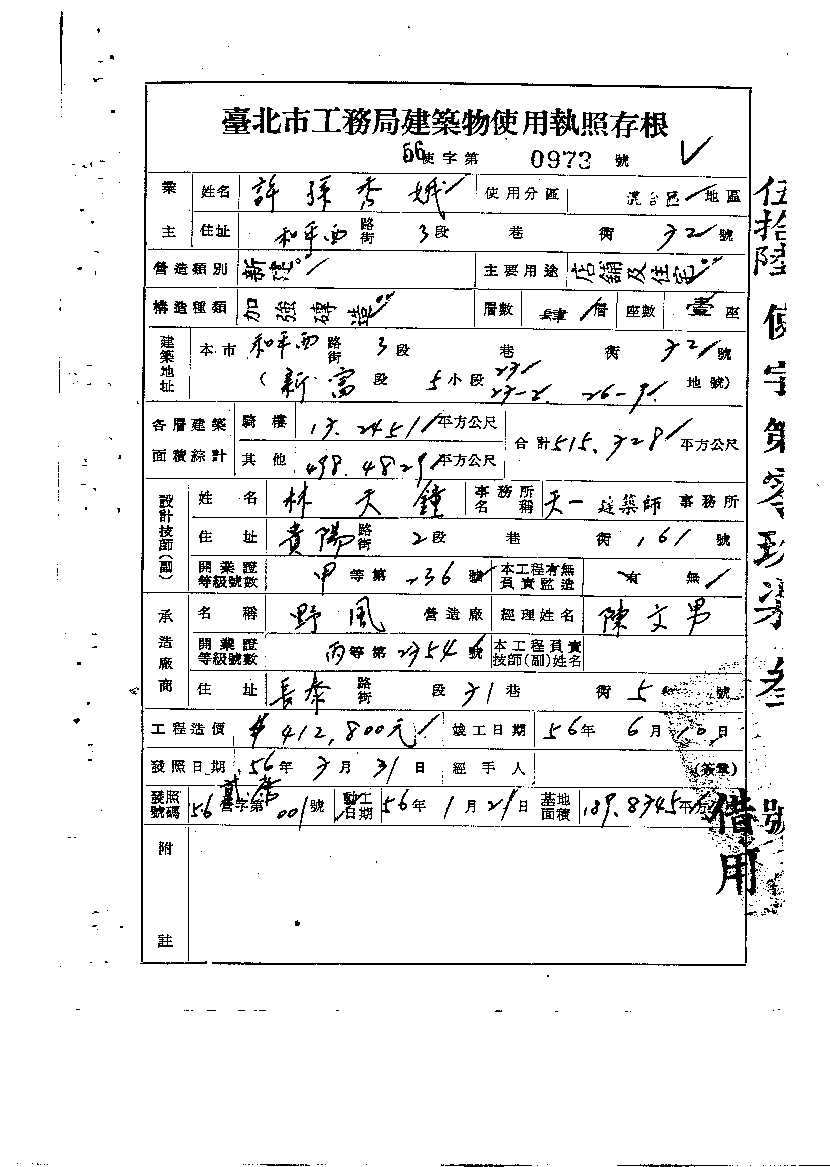 臺北市工務局建築物使用執照存根
56使字第 0973 號
業主 姓名 許張秀娥 使用分區 混合區 地區
住址 和平西 路街 3段 巷 衖 32 號
營造類別 新建 主要用途 店舖及住宅
構造種類 加強磚造 層數 肆 層 座數 座
建築地址 本市 和平西 路街 3段 巷 衖 32 號
(新富段 5小段 23 23-2 26-9 地號)
各層建築面積綜計 騎樓 13.2451 平方公尺 合計 515.728 平方公尺
其他 498.4829 平方公尺
設計技師(副) 姓名 林天鐘 事務所名稱 天一建築師 事務所
住址 貴陽 路街 2段 巷 衖 161 號
開業證等級號數 甲等第 236 號 本工程有無負責監造 有 無
承造廠商 名稱 野風 營造廠 經理姓名 陳文男
開業證等級號數 丙等第 號 本工程負責技師(副)姓名
住址 長泰 路街 段 31巷 衖 5 號
工程造價 $412,800元 竣工日期 56年 6月 10日
發照日期 56年 3月 31日 經手人 (簽章)
發照號碼 56 營字第 001 號 動工日期 56年 1月 21日 基地面積 189.8345 平方
附註
伍拾陸使字第零玖柒叁號
借用